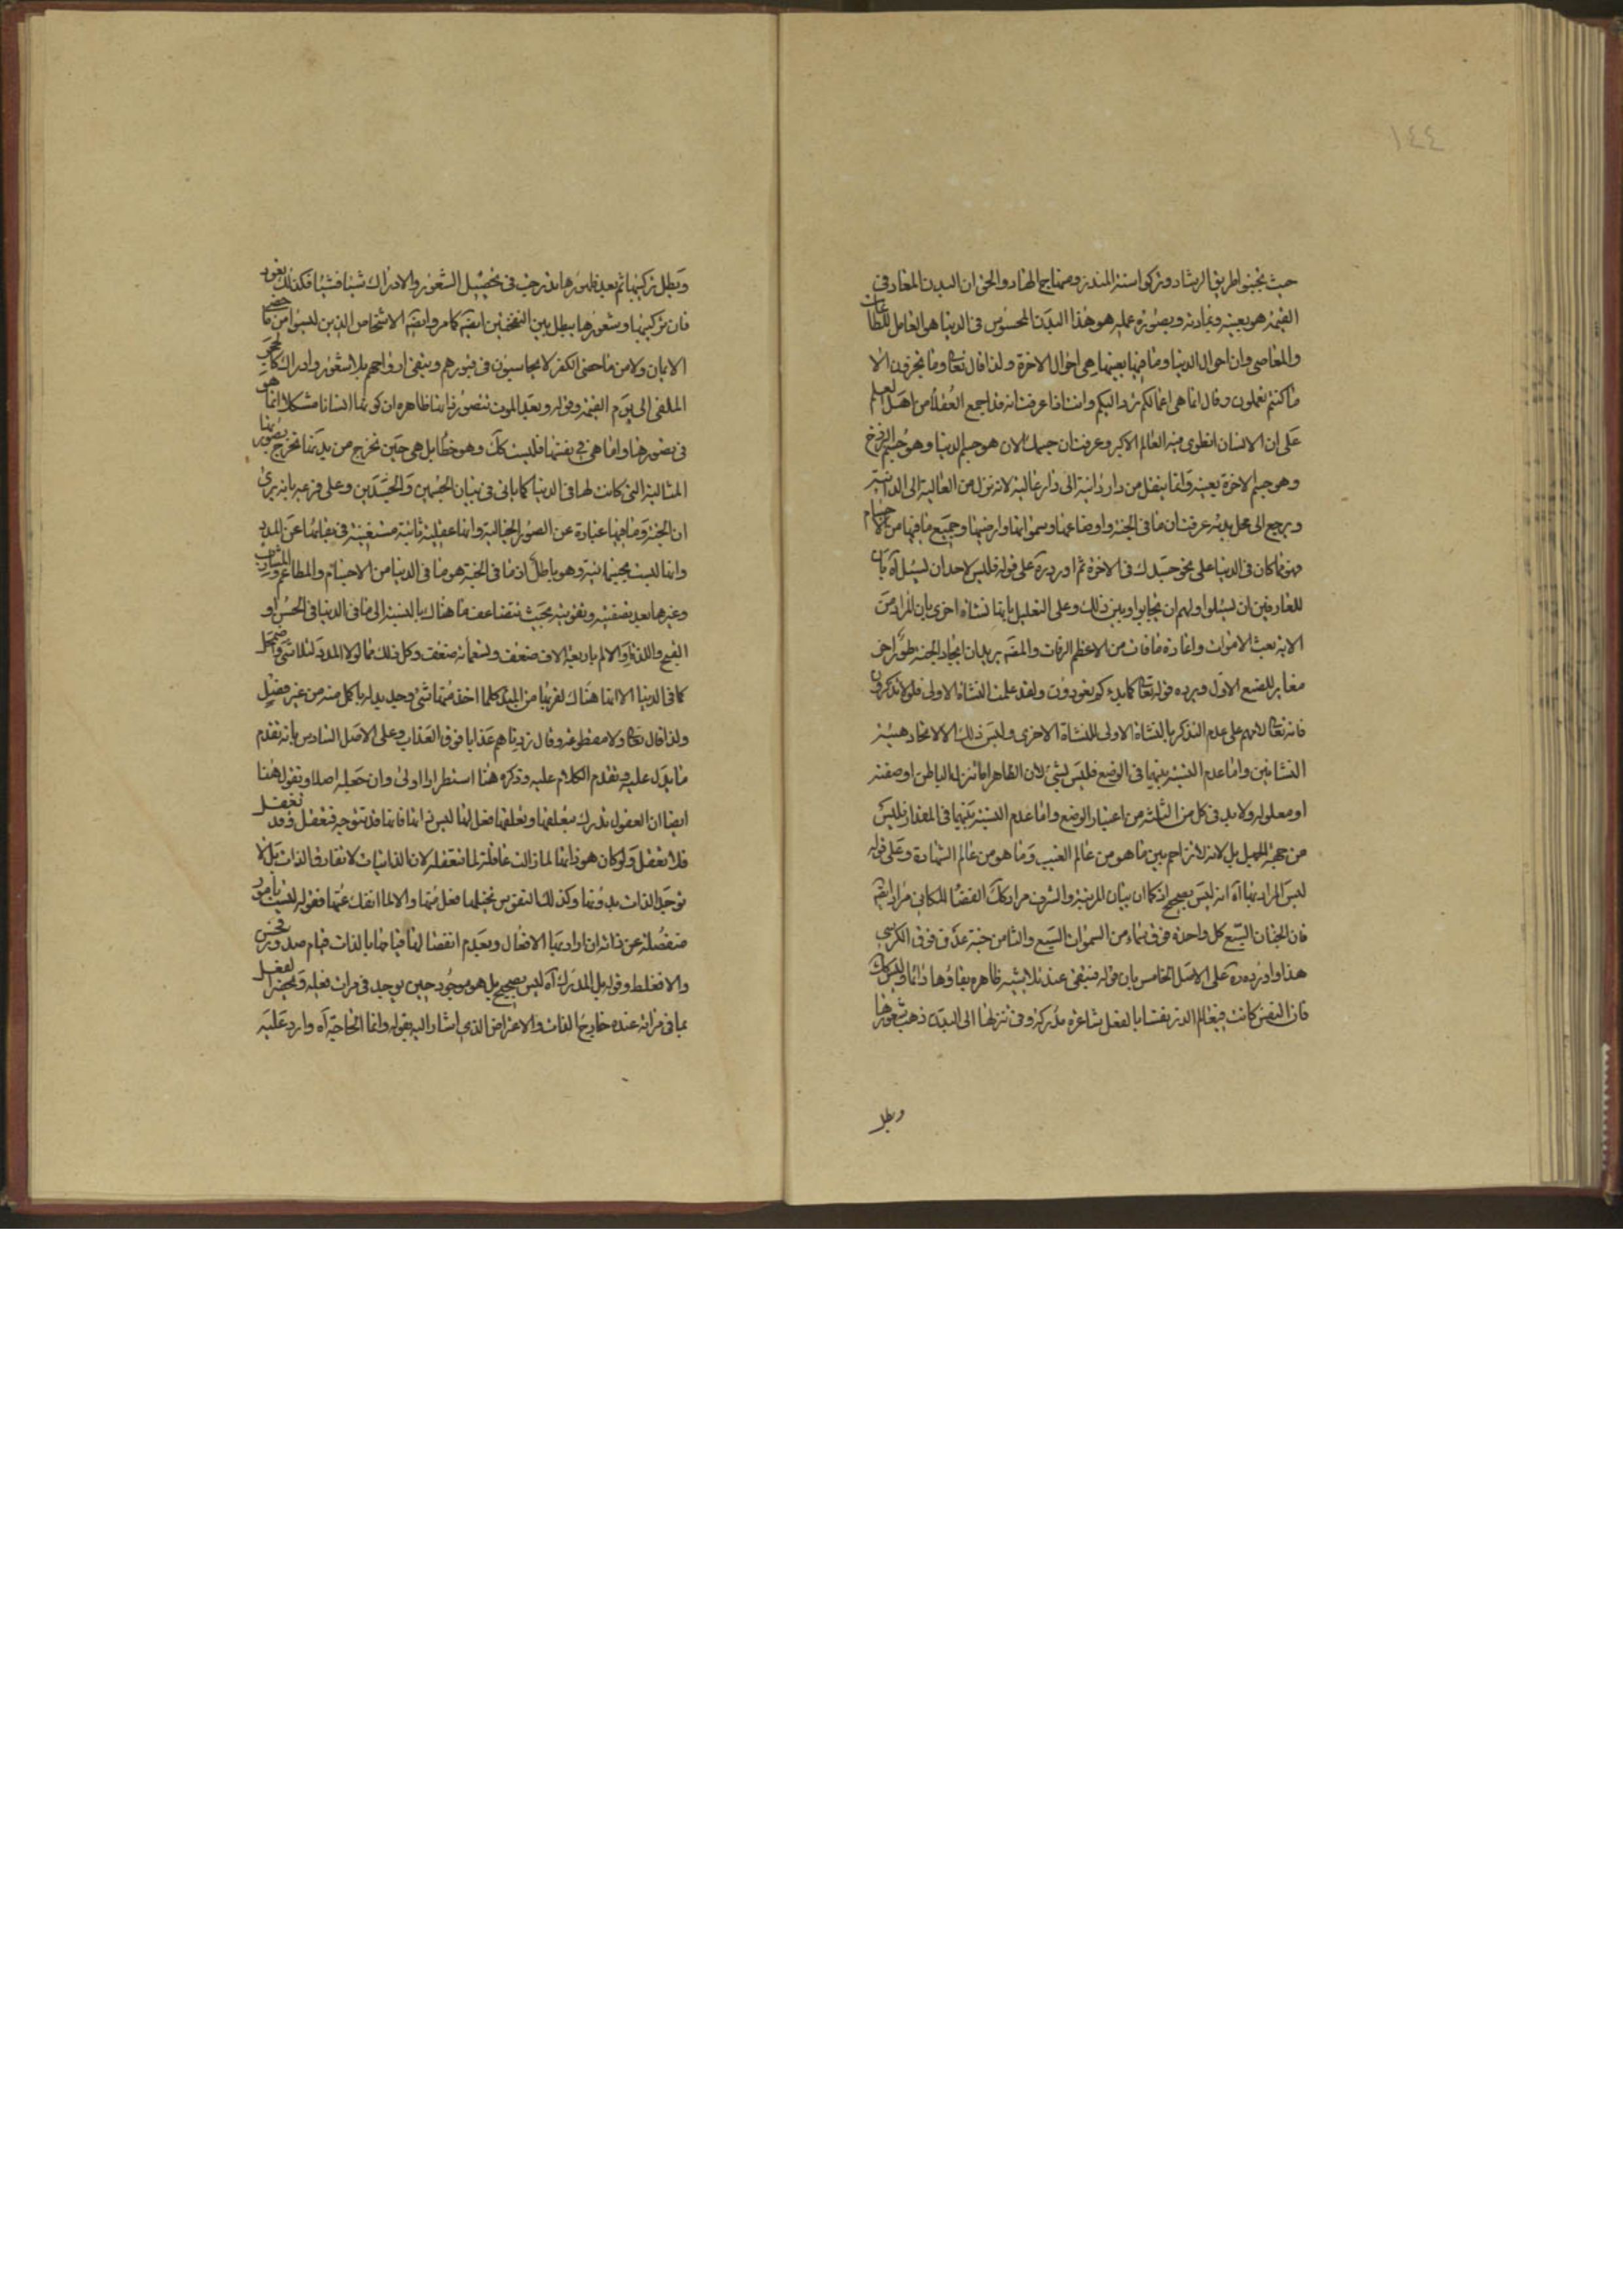 ١٤٤
حيث تجنبوا طريق الرشاد وتركوا سنة المنذر ومنهاج الهاد والحق ان البدن المعاد فى
القيمة هو بعينه وبمادته وبصورة عمله هو هذا البدن المحسوس فى الدنيا هو العامل للطاعات
والمعاصى وان احوال الدنيا وما فيها بعينها هى احوال الاخرة ولذا قال تعا وما تجزون الا
ما كنتم تعملون وقال انما هى اعمالكم ترد اليكم وانت اذا عرفت انه قد اجمع العقلاء من اهل العلم
على ان الانسان انطوى فيه العالم الاكبر وعرفت ان جسمك الان هو جسم الدنيا وهو جسم البرزخ
وهو جسم الاخرة بعينه وانما ينتقل من دار دانية الى دار عالية لانه نزل من العالية الى الدانية
ويرجع الى محل بدئه عرفت ان ما فى الجنة واوضاعها وسمواتها وارضيها وجميع ما فيها من الاجسام
مهو ما كان فى الدنيا على نحو جسدك فى الاخرة ثم اورد ره على قوله فليس لاحد ان يسئل آه بان
للعارفين ان يسئلوا ولهم ان يجابوا وبين ذلك وعلى التعليل بانها نشاة اخرى بان المراد من
الاية بعث الاموات واعادة ما فات من الاعظم الرفات والمقم يريد ان ايجاد الجنة طور اخر
مغاير للصنع الاول ويرده قوله تعا كما بدءكم تعودون ولقد علمتم النشاة الاولى فلولا تذكرون
فانه تعا لامهم على عدم التذكر بالنشاة الاولى للنشاة الاخرى وليس ذلك الا لاتحاد هيئة
النشاتين واما عدم النسبة بينهما فى الوضع فليس بشئ لان الظاهر اما تنزل الباطن او صفته
او معلوله ولا بد فى كل من الثلثة من اعتبار الوضع واما عدم النسبة بينهما فى المقدار فليس
من جهة الجهل بل لانه لا تزاحم بين ما هو من عالم الغيب وما هو من عالم الشهادة وعلى قوله
ليس المراد بها آه انه ليس بصحيح اذ كما ان بيان المرتبة والشرف مراد كك الفضا المكانى مراد ايضم
فان الجنان السبع كل واحدة فوق سماء من السموات السبع والثامن جنة عدن فوق الكرسى
هذا واورد ره على الاصل الخامس بان قوله فتبقى عند تلا شيه ظاهره بقاؤها دائما وليس كك
فان النفس كانت فى عالم الذر نفسا بالفعل شاعرة مدركة وفى تنزلها الى البدن ذهب شعورها
وبطل
وبطل تركيبها ثم بعد ظهورها تدرجت فى تحصيل الشعور والادراك شيئا فشيئا فكذلك تعود
فان تركيبها وشعورها يبطل بين النفختين ايضم كما مر وايضم الاشخاص الذين ليسوا من ماحض
الايمان ولا من ماحض الكفر لا يحاسبون فى قبورهم وتبقى ارواحهم بلا شعور وادراك كالحجر
الملقى الى يوم القيمة وقوله وبعد الموت تتصور ذاتها ظاهره ان كونها انسانا مشكلا انما هو
فى تصورها واما هى فى نفسها فليست كك وهو خطا بل هى حين تخرج من بدنها تخرج بصورتها
المثالية التى كانت لها فى الدنيا كما ياتى فى بيان الجسمين والجسدين وعلى فرعه بانه يرى
ان الجنة وما فيها عبارة عن الصور الخيالية وانها عقلية ثابتة مستغنية فى بقائها عن المدد
وانها ليست بجسمانية وهو باطل اذ ما فى الجنة هو ما فى الدنيا من الاجسام والمطاعم والمشارب
وغيرها بعد تصفيته وتقويته بحيث تتضاعف ما هناك بالنسبة الى ما فى الدنيا فى الحسن او
القبح واللذة والالم باربعة الاف ضعف وتسعمائة ضعف وكل ذلك مما لولا المدد لتلاشى واضمحل
كما فى الدنيا الا انها هناك لقربها من المبدء كلما اخذ منها شئ وجد بدله باكمل منه من غير فصل
ولذا قال تعا ولا مقطوعة وقال زدناهم عذابا فوق العذاب وعلى الاصل السادس بانه تقدم
ما يدل عليه وتقدم الكلام عليه وذكره هنا استطرادا اولى وان جعله اصلا ونقول هنا
ايضا ان العقول تدرك بتعلقها وتعلقها فعل لها ليس ذاتها فانها قد تتوجه فتعقل وقد تغفل
فلا تعقل ولو كان هو ذاتها لما زالت عاقلة لما تتعقله لان الذاتيات لا تفارق الذات بل لا
توجد الذات بدونها وكذلك النفوس تخيلها فعل منها والا لما انفك عنها فقوله ليست بامور
منفصلة عن ذاته ان اراد بها الافعال وبعدم انفصالها قيامها بالذات قيام صدور فحسن
والا فغلط وقوله بل المدرك آه ليس بصحيح بل هو موجود حين يوجد فى مرات فعله وتحضر الفعل
بما فى مراته عنده خارج الذات والاعتراض الذى اشار اليه بقوله وانما الحاجة آه وارد عليه